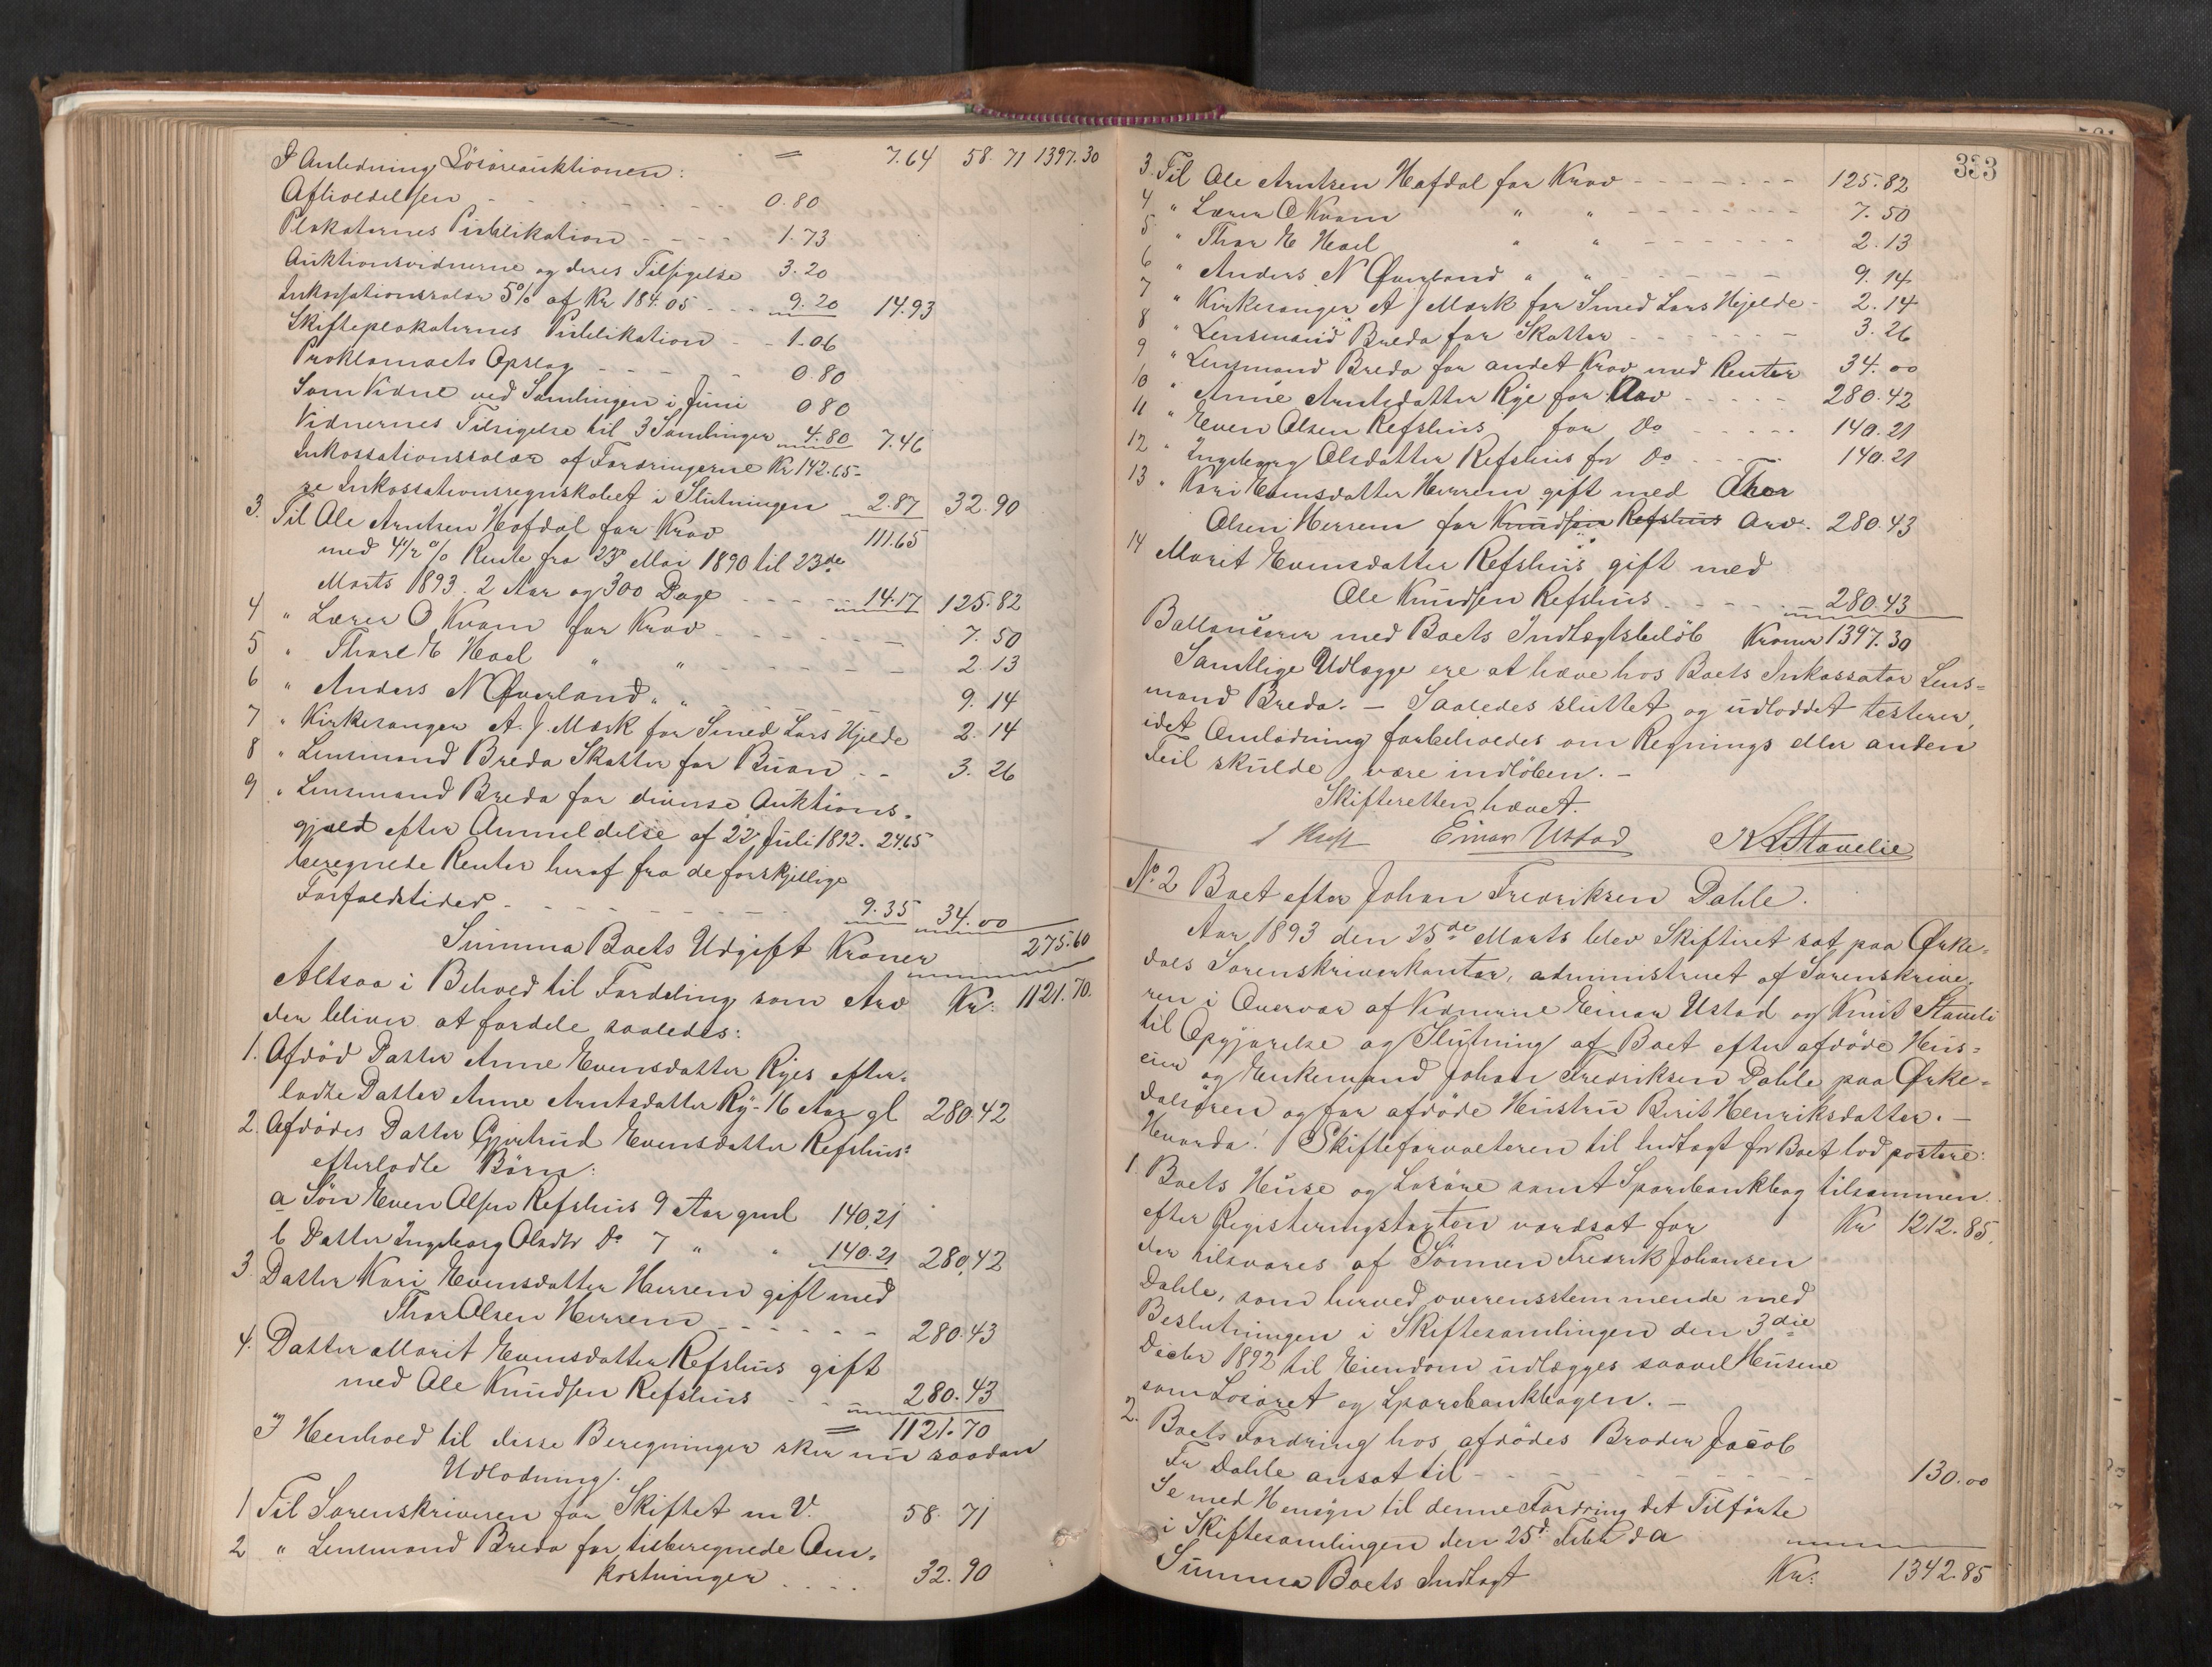 I Anledning Lösöreauktionen: = 7.64 58.71 1397.30
Afholdelsen - - - - - 0.80
Plakaternes Publikation - - - - 1.73
Auktionsvidnerne og deres Tilsigelse 3.20
Inkassationssalær 5% af Kr 184.05 - - 9.20 14.93
Skifteplakaternes Publikation - - 1.06
Proklamaets Opslag - - - - - 0.80
Som Vidne ved Samlingen i Juni 0 80
Vidnernes Tilsigelse til 3 Samlinger 4.80 7.46
Inkassationssalær af Fordringerne Kr 142.65-
se Inkassationsregnskabet i Slutningen 2.87 32.90
3. Til Ole Arntsen Hofdal for Krav 111.65
med 4 1/2 % Rente fra 23de Mai 1890 til 23de
Marts 1893. 2 Aar og 300 Dage - - - - 14.17 125.82
4 " Lærer O Kvam for Krav - - - - - - - 7.50
5 " Thore E Hoel " " - - - - - 2.13
6 " Anders N Øverland " " - - - - - 9.14
7 " Kirkesanger A. J. Mærk for Smed Lars Hjelde 2.14
8 " Lensmand Breda Skatter for Buan - - 3.26
9 " Lensmand Breda for diverse Auktions-
gjæld efter Anmeldelse af 22 Juli 1892. 24.65
beregnede Renter heraf fra de forskjellige
Forfaldstider - - - - - - - - 9.35 34.00
Summa Boets Udgift Kroner 275.60
Altsaa i Behold til Fordeling som Arv Kr: 1121.70.
der bliver at fordele saaledes:
1. Afdöd Datter Anne Evensdatter Ryes efter-
ladte Datter Anne Arntsdatter Ry- 16 Aar gl 280.42
2. Afdödes Datter Gjertrud Evensdatter Refshus:
efterladte Börn:
a Sön Even Olsen Refshus 9 Aar gml 140.21
b Datter Ingeborg Olsdtr Do 7 " " 140.21 280,42
3 Datter Kari Evensdatter Herrem gift med
Thor Olsen Herrem - - - - - - 280.43
4. Datter Marit Evensdatter Refshus gift
med Ole Knudsen Refshus - - - 280.43
= 1121.70
I Henhold til disse Beregninger sker nu saadan
Udlodning:
1 Til Sorenskriveren for Skiftet m V. 58.71
2 " Lensmand Breda for tilberegnede Om-
kostninger . . . . 32.90
333
3. Til Ole Arntsen Hofdal for Krav - - - - - - - 125.82
4 " Lærer O Kvam " " - - - - - - - - 7.50
5 " Thor E Hoel " " - - - - - - 2.13
6 " Anders N Øverland " " - - - - - - - 9.14
7 " Kirkesanger A J Mærk for Smed Lars Hjelde - 2.14
8 " Lensmand Breda for Skatter - - - - - - - 3.26
9 " Lensmand Breda for andet Krav med Renter 34.00
10 " Anne Arntsdatter Rye for Arv - - - - - 280.42
11 " Even Olsen Refshus for Do - - - - - 140.21
12 " Ingeborg Olsdatter Refshus for Do - - - - 140.21
13 " Kari Evensdatter Herrem gift med Thor
Olsen Herrem for Knudsen Refshus Arv. 280.43
14 Marit Evensdatter Refshus gift med
Ole Knudsen Refshus - - - - - 280.43
Ballancerer med Boets Indtægtsbelöb Kroner 1397.30
Samtlige Udlægge ere at hæve hos Boets Inkassator Lens=
mand Breda. - Saaledes sluttet og udloddet testerer,
idet Omlodning forbeholdes om Regnings eller anden
Feil skulde være indlöben. -
Skifteretten hævet.
Einar Ustad K Stavelie
No. 2 Boet efter Johan Fredriksen Dahle.
Aar 1893 den 25de Marts blev Skifteret sat paa Ørke=
dals Sorenskriverkontor, administreret af Sorenskrive-
ren i Overvær af Vidnerne Einar Ustad og Knut Staveli
til Opgjørelse og Slutning af Boet efter afdöde Hus=
eier og Enkemand Johan Fredriksen Dahle paa Ørke=
dalsören og før afdöde Hustru Berit Henriksdatter. -
Hvorda! Skifteforvalteren til Indtægt for Boet lod postere:
1. Boets Huse og Lösöre samt Sparebankbog tilsammen
efter Registeringstaxten værdsat for Kr 1212.85.
der tilsvares af Sönnen Fredrik Johansen
Dahle, som herved overensstemmende med
Beslutningen i Skiftesamlingen den 3die
Decbr 1892 til Eiendom udlægges saavel Husene
som Lösöret og Sparebankbogen. -
2. Boets Fordring hos afdödes Broder Jacob
Fr Dahle ansat til - - - - - - - - - - 130.00
Se med Hensyn til denne Fordring det Tilförte
i Skiftesamlingen den 25d Febr d A
Summa Boets Indtægt Kr: 1342.85